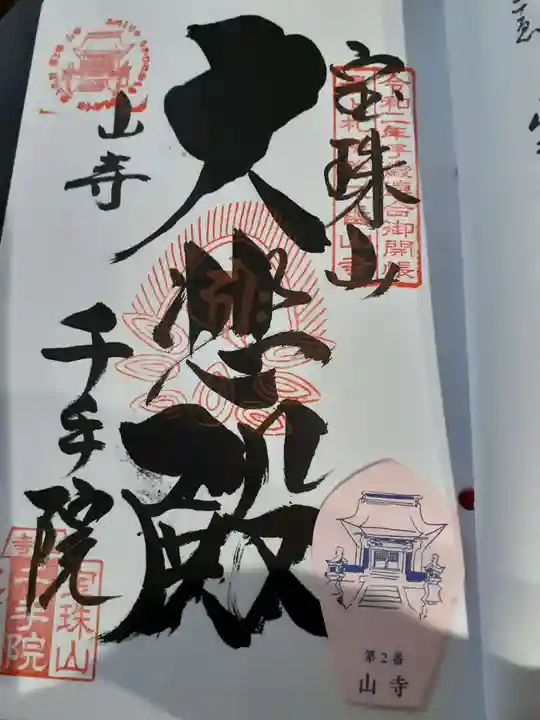 宝珠山
大悲殿
山寺
千手院
令和二年子歳連合御開帳
宝珠山
千手院
第2番
山寺